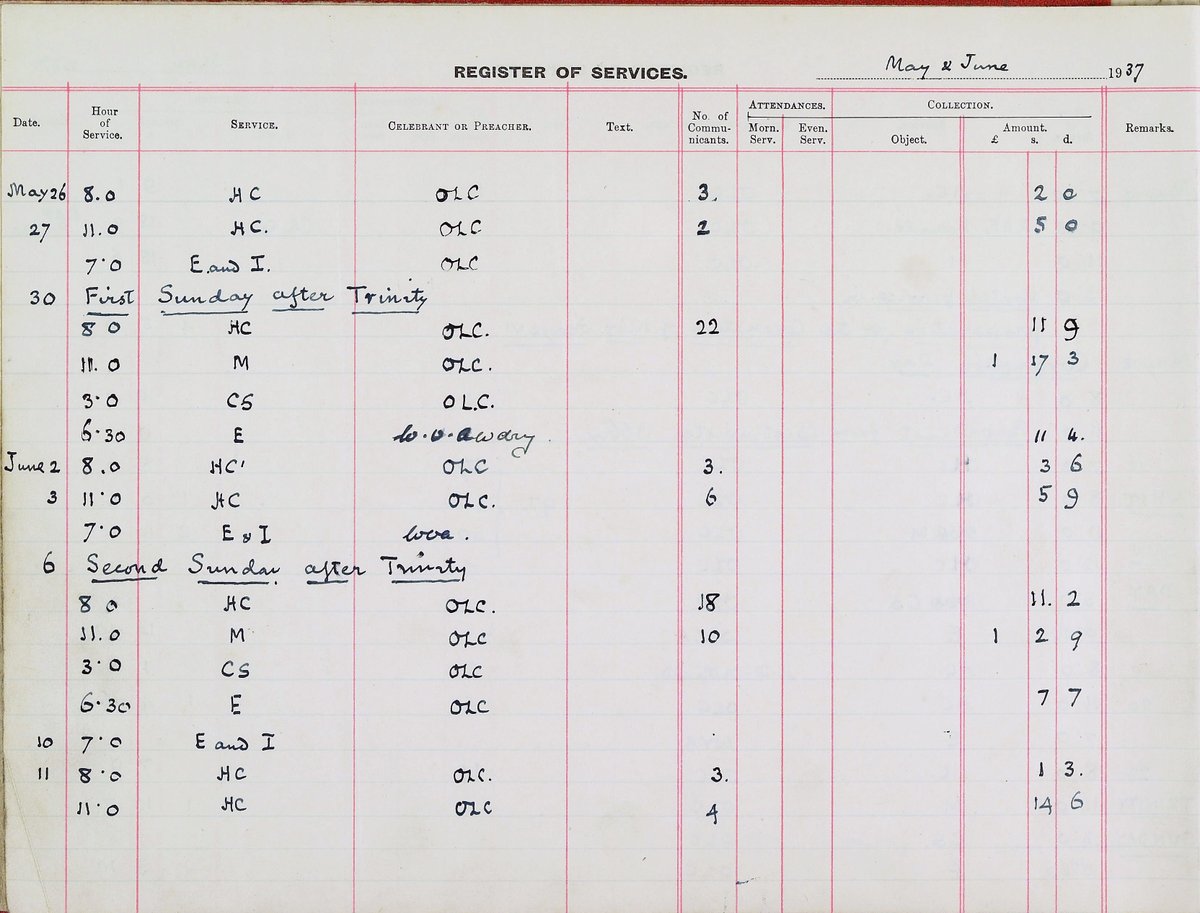 REGISTER OF SERVICES. May & June 1937
Date. Hour of Service. SERVICE. CELEBRANT OR PREACHER. Text. No. of Commu-nicants. ATTENDANCES. Morn. Serv. Even. Serv. COLLECTION. Object. Amount. £ s. d. Remarks.
May 26 8.0 HC OLC 3. 2 0
27 11.0 HC. OLC 2 5 0
7.0 E. and I. OLC
30 First Sunday after Trinity
8 0 HC OLC. 22 11 9
11.0 M OLC. 1 17 3
3.0 CS OLC.
6.30 E W.V.Awdry. 11 4.
June 2 8.0 HC' OLC 3. 3 6
3 11.0 HC OLC. 6 5 9
7.0 E & I WVA.
6 Second Sunday after Trinity
8 0 HC OLC. 18 11. 2
11.0 M OLC 10 1 2 9
3.0 CS OLC
6.30 E OLC 7 7
10 7.0 E and I
11 8.0 HC OLC. 3. 1 3.
11.0 HC OLC 4 14 6